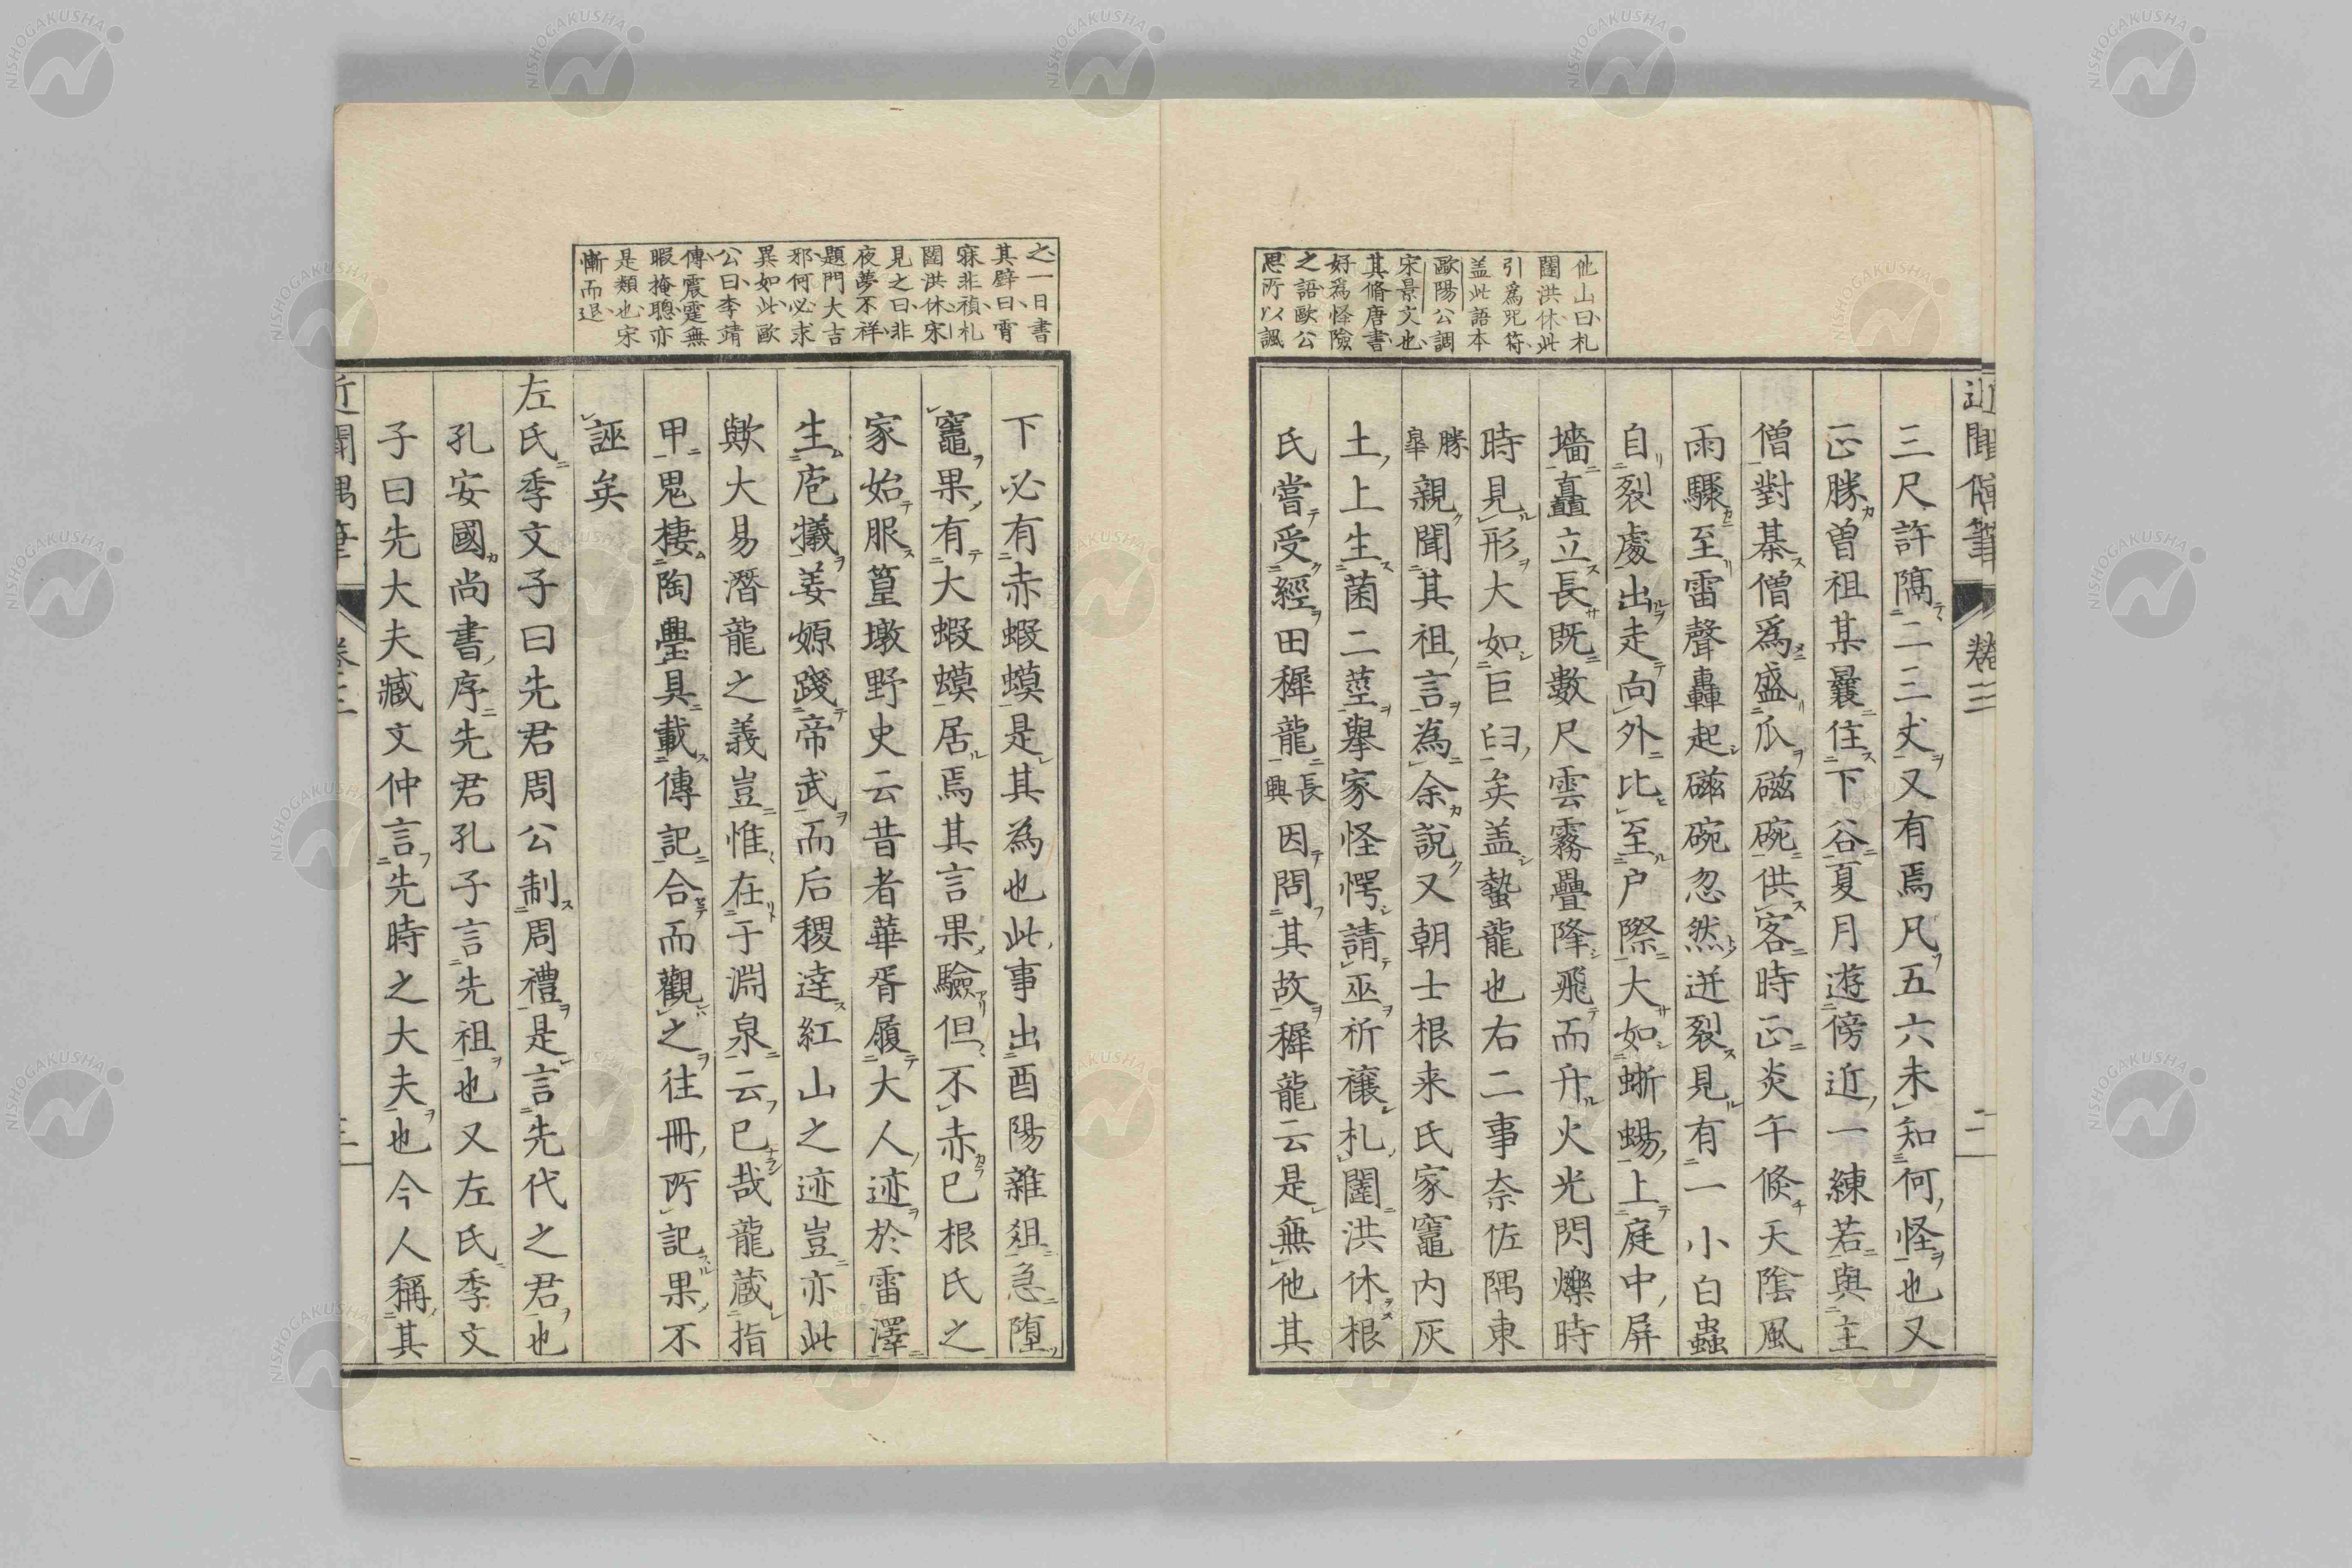 他山曰札
闥洪休此
引爲咒符
盖此語本
歐陽公調
宋景文也
其脩唐書
好為怪險
之語歐公
思所以諷
近聞偶筆
卷三
二
三尺許隔二三丈又有焉凡五六未知何怪也又
正勝曾祖某曩住下谷夏月遊傍近一練若與主
僧對棊僧爲盛瓜磁碗供客時正炎午倐天陰風
雨驟至雷聲轟起磁碗忽然迸裂見有一小白蟲
自裂處出走向外比至户際大如蜥蜴上庭中屏
墻矗立長既數尺雲霧疊降飛而升火光閃爍時
時見形大如巨臼矣盖蟄龍也右二事奈佐隅東
勝皐親聞其祖言為余說又朝士根来氏家竈内灰
土上生菌二莖擧家怪愕請巫祈禳札闥洪休根
氏嘗受經田穉龍長興因問其故穉龍云是無他其
之一日書
其壁曰宵
寐非禎札
闥洪休宋
見之曰非
夜夢不祥
題門大吉
邪何必求
異如此歐
公曰李靖
傳震霆無
暇掩聰亦
是類也宋
慚而退
下必有赤蝦蟆是其為也此事出酉陽雜俎急墮
竈果有大蝦蟆居焉其言果驗但不赤已根氏之
家始服篁墩野史云昔者華胥履大人迹於雷澤
生庖犧姜嫄踐帝武而后稷逹紅山之迹豈亦此
歟大易潛龍之義豈惟在于淵泉云已哉龍蔵指
甲鬼棲陶罍具載傳記合而觀之往冊所記果不
誣矣
左氏季文子曰先君周公制周禮是言先代之君也
孔安國尚書序先君孔子言先祖也又左氏季文
子曰先大夫臧文仲言先時之大夫也今人稱其
近聞偶筆
卷三
三